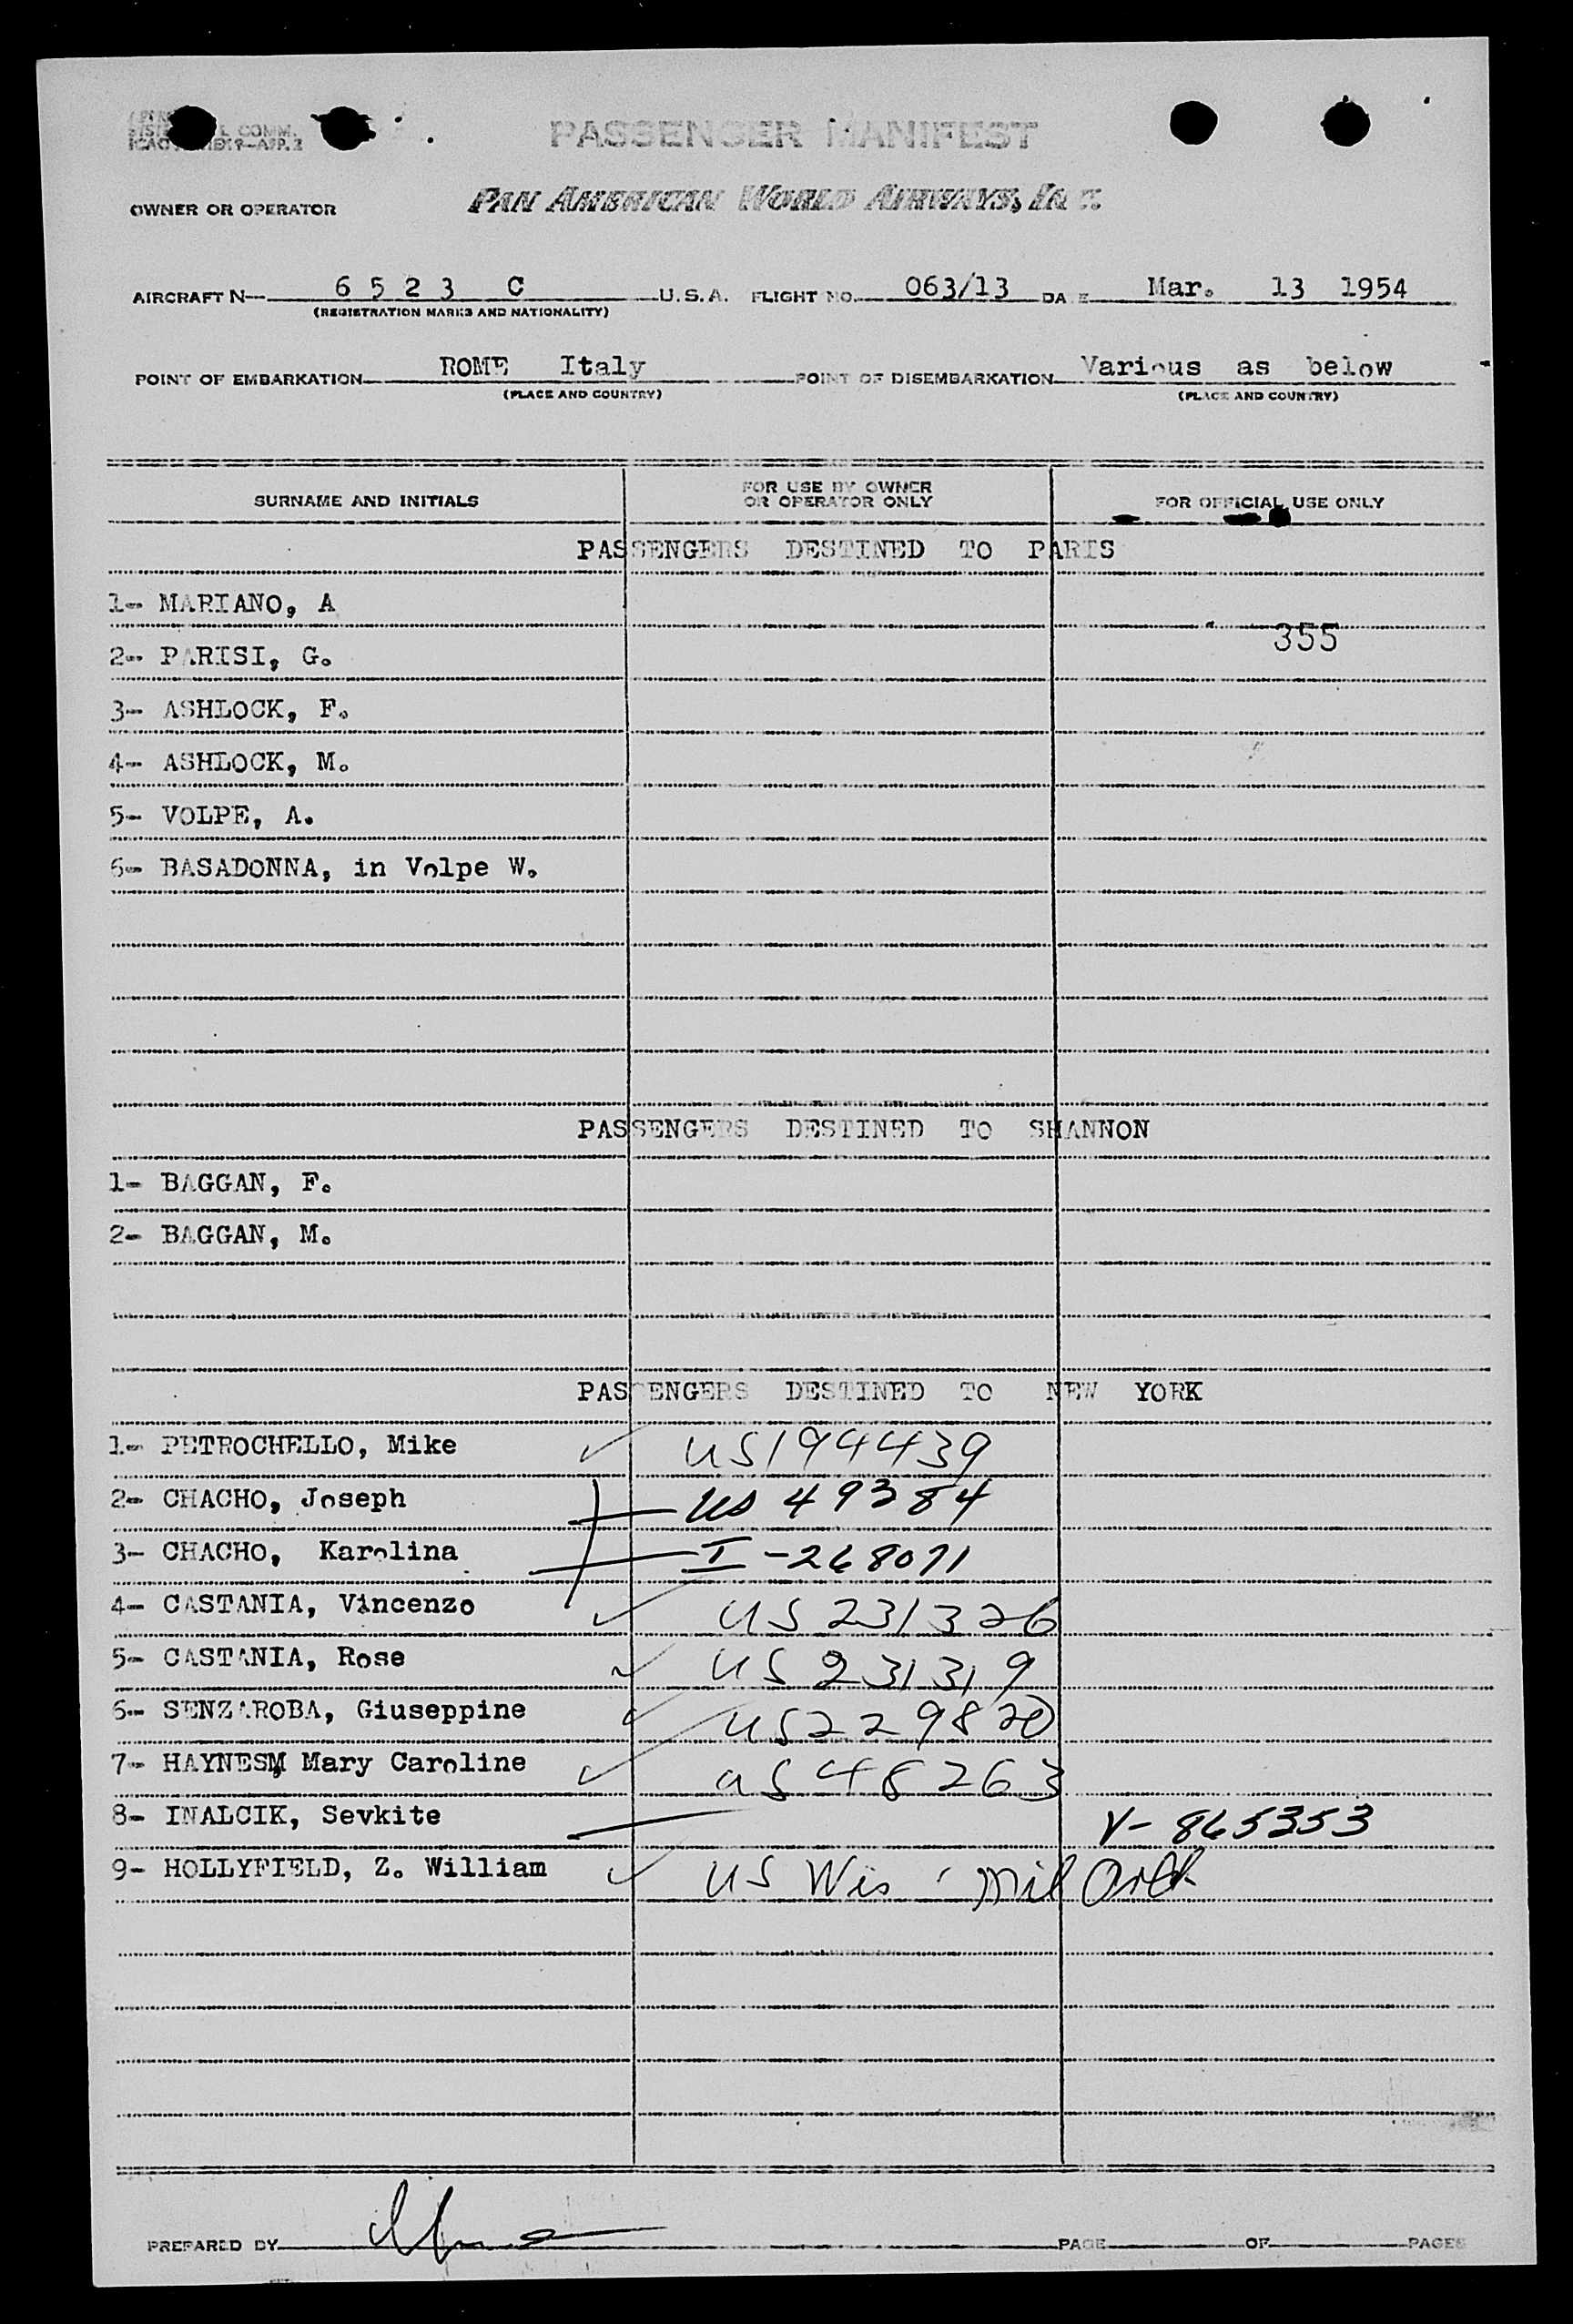 PASSENGER MANIFEST
OWNER OR OPERATOR PAN AMERICAN WORLD AIRWAYS, INC.
AIRCRAFT N— 6 5 2 3 C U.S.A. FLIGHT NO. 063/13 DATE Mar. 13 1954
(REGISTRATION MARKS AND NATIONALITY)
POINT OF EMBARKATION ROME Italy POINT OF DISEMBARKATION Various as below
(PLACE AND COUNTRY) (PLACE AND COUNTRY)
SURNAME AND INITIALS FOR USE BY OWNER OR OPERATOR ONLY FOR OFFICIAL USE ONLY
PASSENGERS DESTINED TO PARIS
1- MARIANO, A
355
2- PARISI, G.
3- ASHLOCK, F.
4- ASHLOCK, M.
5- VOLPE, A.
6- BASADONNA, in Volpe W.
PASSENGERS DESTINED TO SHANNON
1- BAGGAN, F.
2- BAGGAN, M.
PASSENGERS DESTINED TO NEW YORK
1- PETROCHELLO, Mike ✓ US194439
2- CHACHO, Joseph US 49384
3- CHACHO, Karolina I-268071
4- CASTANIA, Vincenzo ✓ US 231326
5- CASTANIA, Rose ✓ US 231319
6- SENZAROBA, Giuseppine ✓ US229820
7- HAYNESM, Mary Caroline ✓ US 48263
8- INALCIK, Sevkite V- 865353
9- HOLLYFIELD, Z. William ✓ US Mil
PREPARED BY PAGE OF PAGES